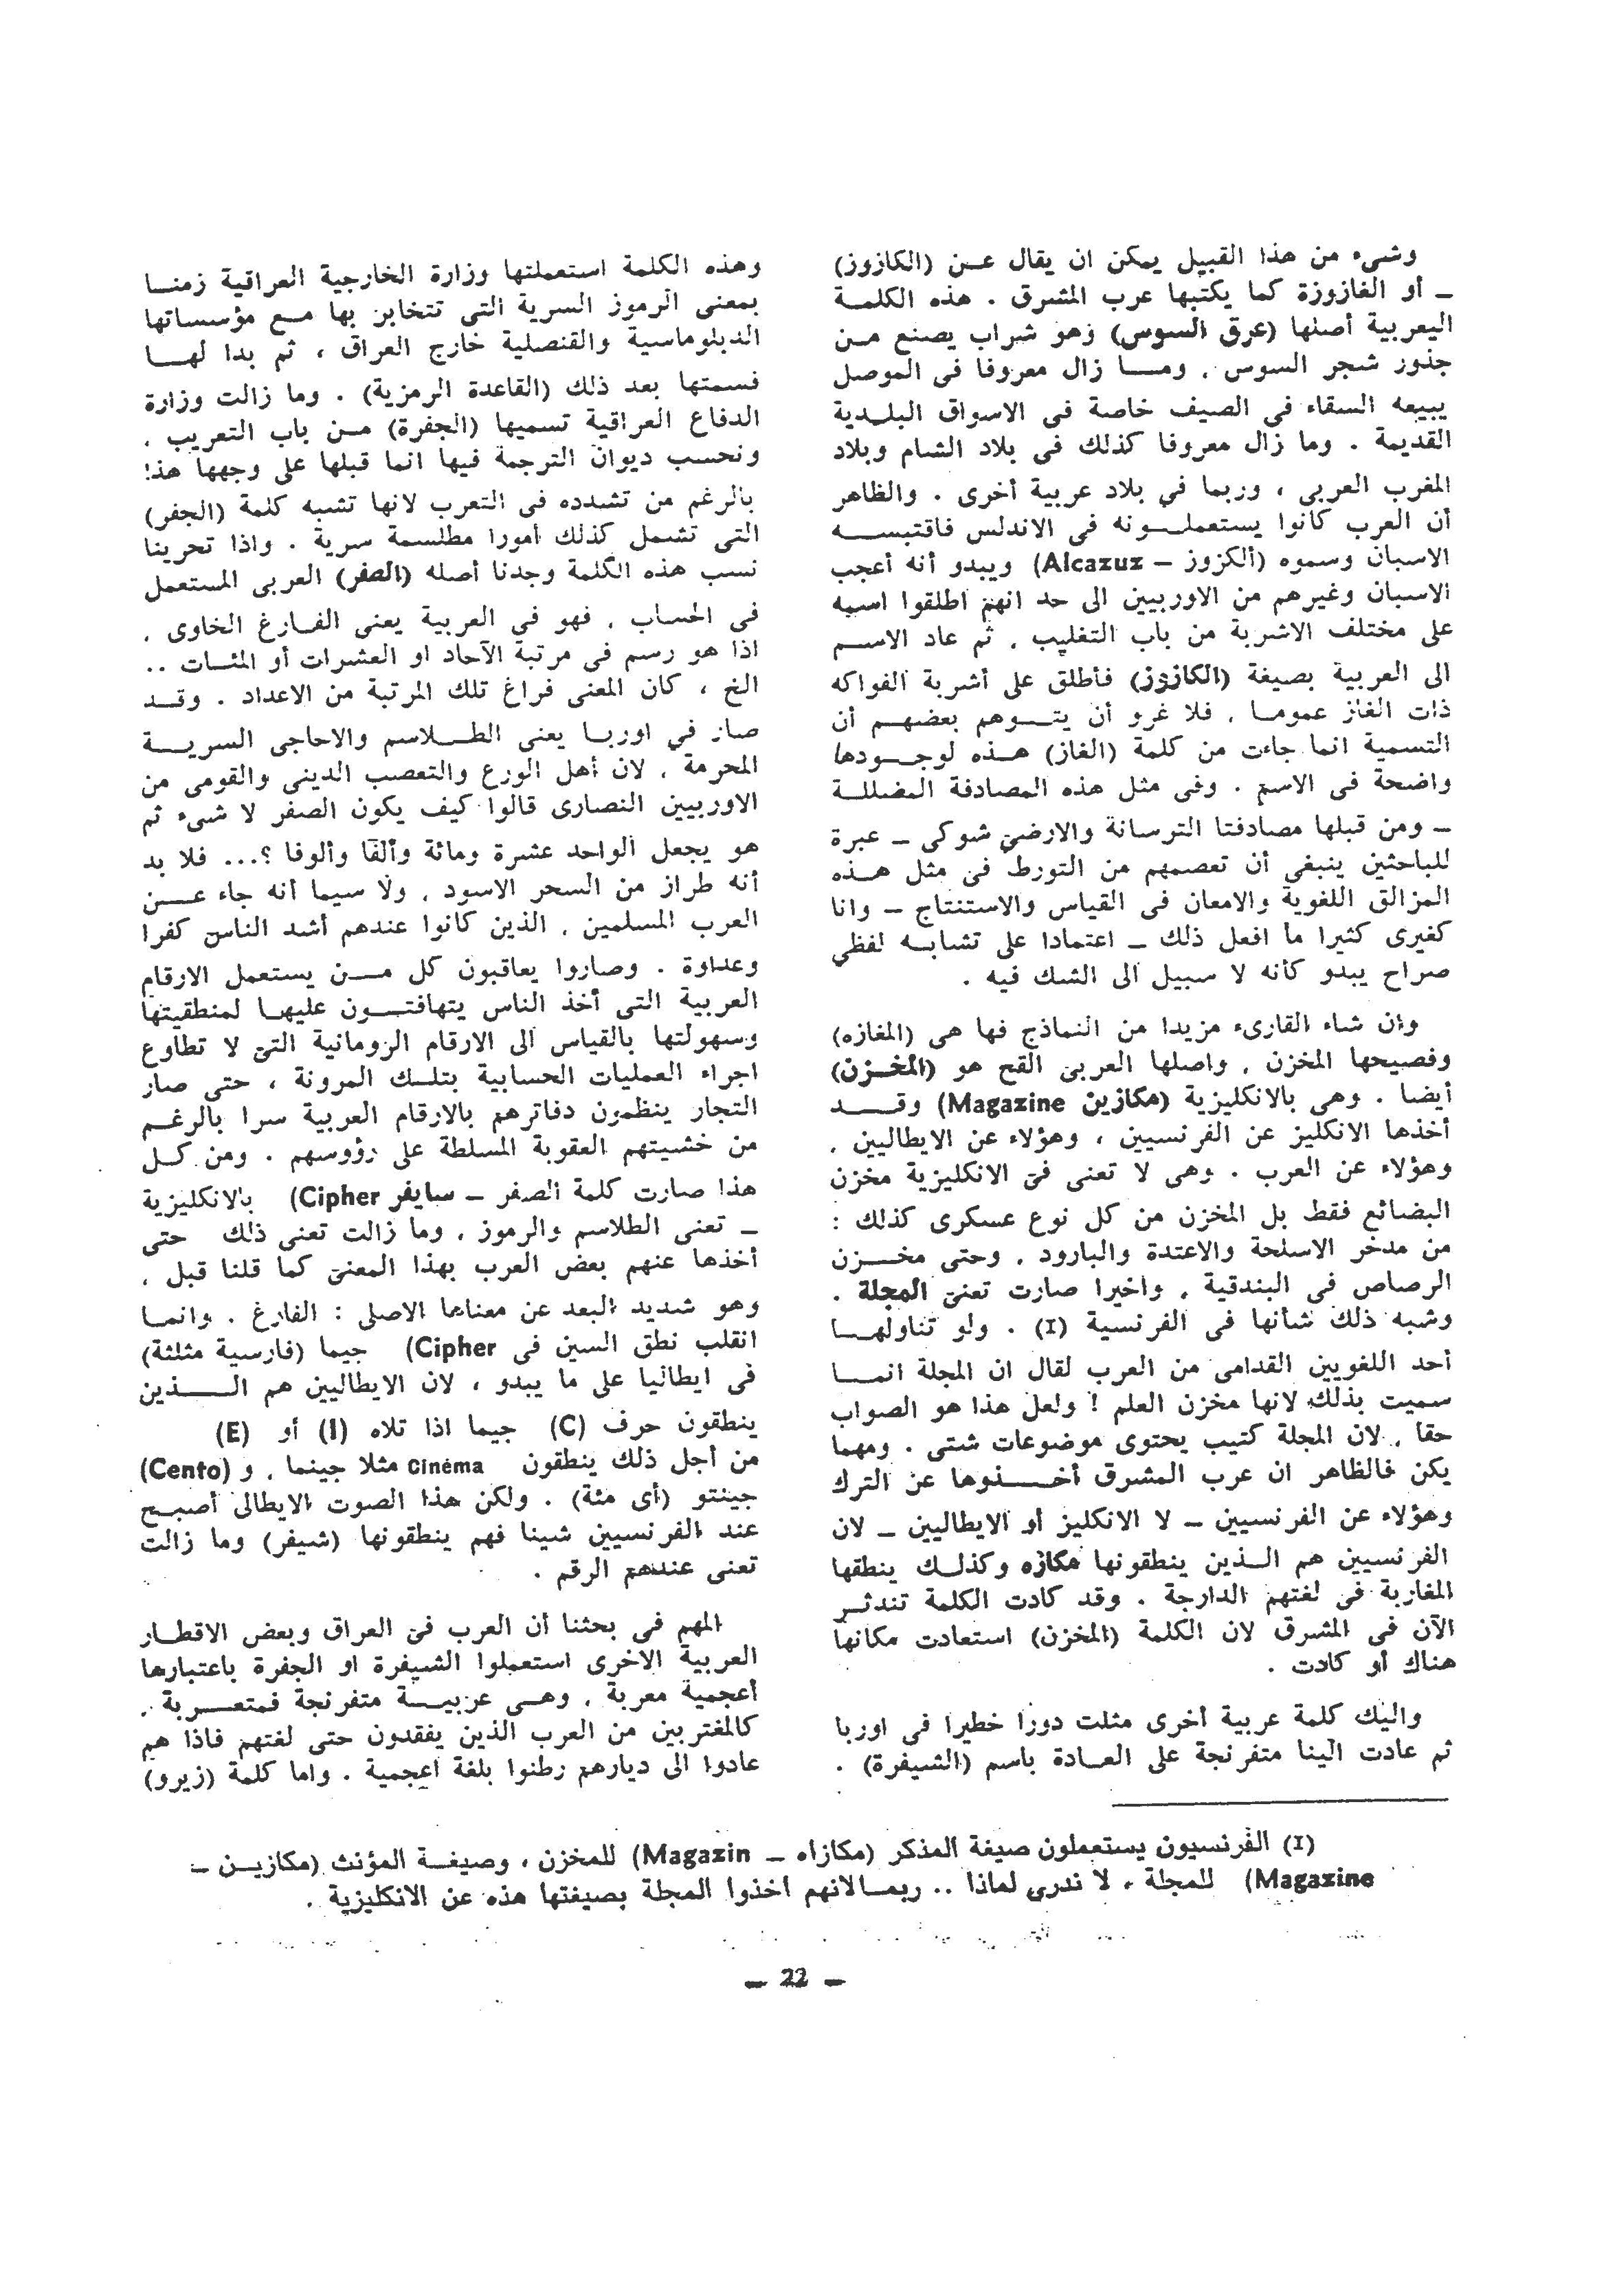 وشيء من هذا القبيل يمكن ان يقال عـن (الكازوز)
ـ أو الغازوزة كما يكتبها عرب المشرق . هذه الكلمـة
اليعربية أصلها (عرق السوس) وهو شراب يصنع مـن
جذور شجر السوس . ومــا زال معروفا فى الموصل
يبيعه السقاء فى الصيف خاصة فى الاسواق البلـدية
القديمة . وما زال معروفا كذلك فى بلاد الشام وبلاد
المغرب العربى ، وربما في بلاد عربية أخرى . والظاهر
أن العرب كانوا يستعملــونه فى الاندلس فاقتبســه
الاسبان وسموه (ألكزوز – Alcazuz) ويبدو أنه أعجب
الاسبان وغيرهم من الاوربيين الى حد انهم اطلقوا اسمه
على مختلف الاشربة من باب التغليب . ثم عاد الاسـم
الى العربية بصيغة (الكازوز) فأطلق على أشربة الفواكه
ذات الغاز عمومـا . فلا غرو أن يتــوهم بعضهـم أن
التسمية انما جاءت من كلمة (الغاز) هـذه لوجــودها
واضحة فى الاسم . وفى مثل هذه المصادفة المضللـة
ـ ومن قبلها مصادفتا الترسانة والارضي شوكى ـ عبرة
للباحثين ينبغى أن تعصمهم من التورط فى مثل هـذه
المزالق اللغوية والامعان فى القياس والاستنتاج ـ وانا
كغيرى كثيرا ما افعل ذلك ـ اعتمادا على تشابـه لفظي
صراح يبدو كأنه لا سبيل الى الشك فيه .
وان شاء القارىء مزيدا من النماذج فها هى (المغازه)
وفصيحها المخزن . واصلها العربى القح هو (المخـزن)
أيضا . وهى بالانكليزية (مكازين Magazine) وقــد
أخذها الانكليز عن الفرنسيين ، وهؤلاء عن الايطاليين .
وهؤلاء عن العرب . وهى لا تعنى فى الانكليزية مخزن
البضائع فقط بل المخزن من كل نوع عسكرى كذلك :
من مدخر الاسلحة والاعتدة والبارود . وحتى مخــزن
الرصاص فى البندقية . واخيرا صارت تعنى المجلة .
وشبه ذلك شأنها فى الفرنسية (I) . ولو تناولهــا
أحد اللغويين القدامى من العرب لقال ان المجلة انمــا
سميت بذلك لانها مخزن العلم ! ولعل هذا هو الصواب
حقا . لان المجلة كتيب يحتوى موضوعات شتى . ومهما
يكن فالظاهر ان عرب المشرق أخــذوها عن الترك
وهؤلاء عن الفرنسيين ـ لا الانكليز أو الايطاليين ـ لان
الفرنسيين هم الـذين ينطقونها مكازه وكذلـك ينطقها
المغاربة فى لغتهم الدارجة . وقد كادت الكلمة تندثـر
الآن فى المشرق لان الكلمة (المخزن) استعادت مكانها
هناك أو كادت .
واليك كلمة عربية أخرى مثلت دورا خطيرا فى اوربا
ثم عادت الينا متفرنجة على العـادة باسم (الشيفرة) .
وهذه الكلمة استعملتها وزارة الخارجية العراقية زمنـا
بمعنى الرموز السرية التى تتخابر بها مـع مؤسساتها
الدبلوماسية والقنصلية خارج العراق ، ثم بدا لهــا
فسمتها بعد ذلك (القاعدة الرمزية) . وما زالت وزارة
الدفاع العراقية تسميها (الجفرة) مـن باب التعريب .
ونحسب ديوان الترجمة فيها انما قبلها على وجهها هذا
بالرغم من تشدده فى التعرب لانها تشبه كلمة (الجفر)
التى تشمل كذلك أمورا مطلسمة سرية . واذا تحرينا
نسب هذه الكلمة وجدنا أصله (الصفر) العربى المستعمل
فى الحساب . فهو في العربية يعنى الفـارغ الخاوى .
اذا هو رسم فى مرتبة الآحاد او العشرات أو المئـات ..
الخ ، كان المعنى فراغ تلك المرتبة من الاعداد . وقـد
صار في اوربـا يعنى الطـلاسم والاحاجى السريــة
المحرمة . لان أهل الورع والتعصب الدينى والقومى من
الاوربيين النصارى قالوا كيف يكون الصفر لا شىء ثم
هو يجعل الواحد عشرة ومائة وألفا وألوفا ؟... فلا بد
أنه طراز من السحر الاسود . ولا سيما أنه جاء عــن
العرب المسلمين . الذين كانوا عندهم أشد الناس كفرا
وعداوة . وصاروا يعاقبون كل مــن يستعمل الارقام
العربية التى أخذ الناس يتهافتــون عليهـا لمنطقيتها
وسهولتها بالقياس الى الارقام الرومانية التى لا تطاوع
اجراء العمليات الحسابية بتلـك المرونة ، حتى صار
التجار ينظمون دفاترهم بالارقام العربية سرا بالرغـم
من خشيتهم العقوبة المسلطة على رؤوسهم . ومن كـل
هذا صارت كلمة الصفر ـ سايفر Cipher) بالانكليزية
ـ تعنى الطلاسم والرموز . وما زالت تعنى ذلك حتى
أخذها عنهم بعض العرب بهذا المعنى كما قلنا قبل .
وهو شديد البعد عن معناها الاصلى : الفارغ . وانمـا
انقلب نطق السين فى Cipher) جيما (فارسية مثلثة)
فى ايطاليا على ما يبدو ، لان الايطاليين هم الــذين
ينطقون حرف (C) جيما اذا تلاه (I) أو (E)
من أجل ذلك ينطقون Cinéma مثلا جينما . و (Cento)
جينتو (أى مئة) . ولكن هذا الصوت الايطالى أصبـح
عند الفرنسيين شينا فهم ينطقونها (شيفر) وما زالت
تعنى عندهم الرقم .
المهم فى بحثنا أن العرب فى العراق وبعض الاقطـار
العربية الاخرى استعملوا الشيفرة او الجفرة باعتبارها
أعجمية معربة . وهـى عربيــة متفرنجة فمتعــربة .
كالمغتربين من العرب الذين يفقدون حتى لغتهم فاذا هم
عادوا الى ديارهم رطنوا بلغة اعجمية . واما كلمة (زيرو)
(I) الفرنسيون يستعملون صيغة المذكر (مكازاه ـ Magazin) للمخزن ، وصيغـة المؤنث (مكازيـن ـ
Magazine) للمجلة ، لا ندري لماذا .. ربمـا لانهم اخذوا المجلة بصيغتها هذه عن الانكليزية .
ـ 22 ـ